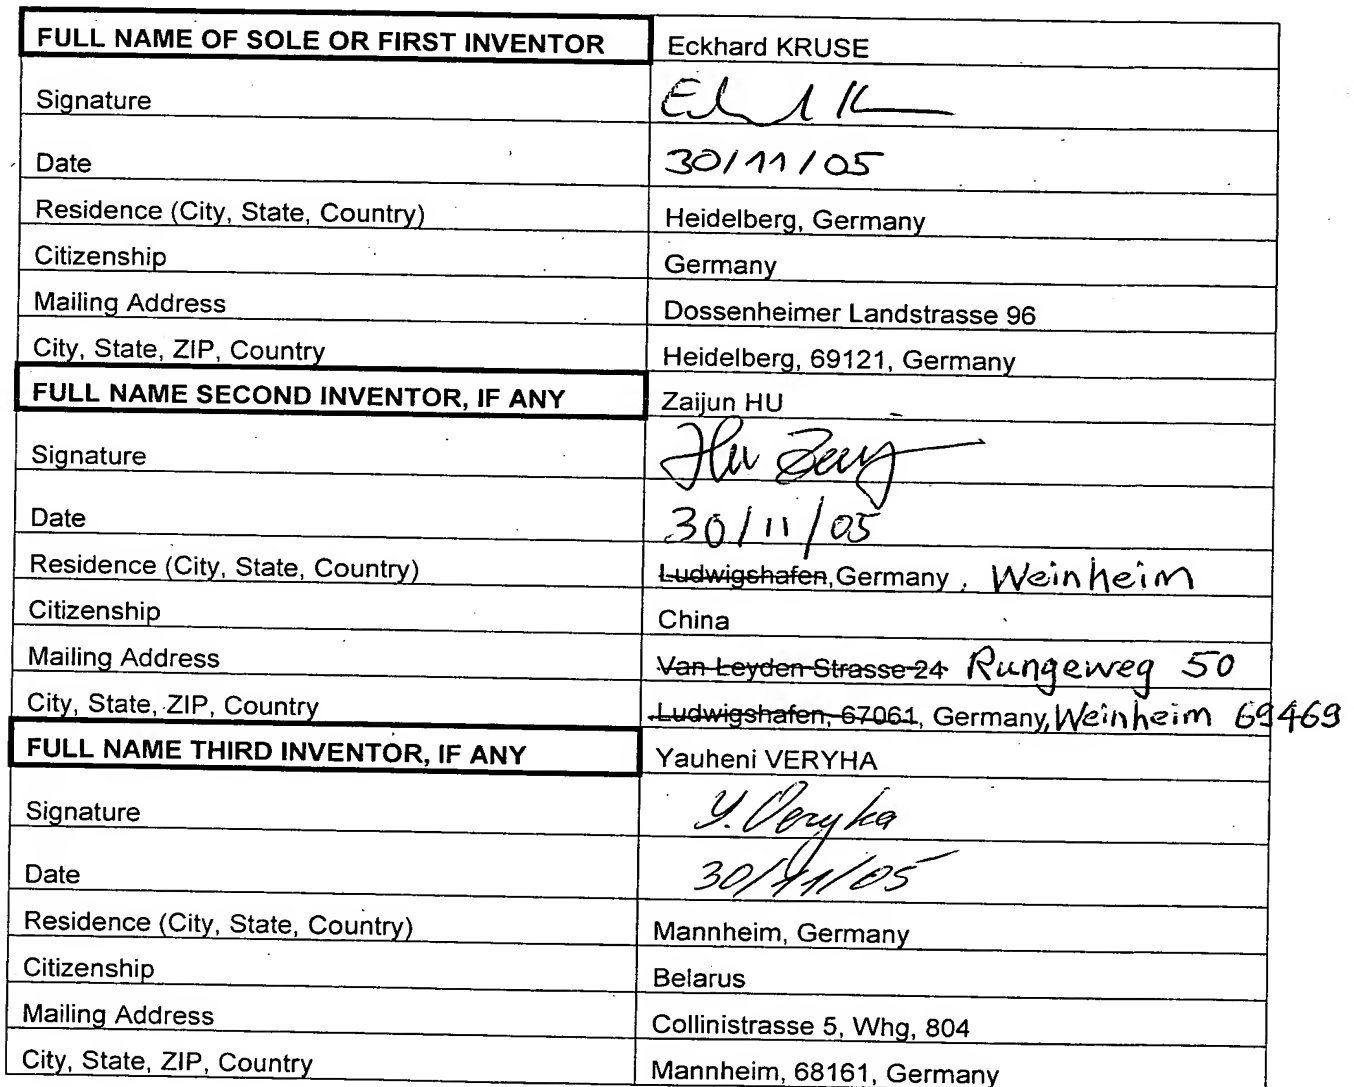 FULL NAME OF SOLE OR FIRST INVENTOR Eckhard KRUSE
Signature
Date 30/11/05
Residence (City, State, Country) Heidelberg, Germany
Citizenship Germany
Mailing Address Dossenheimer Landstrasse 96
City, State, ZIP, Country Heidelberg, 69121, Germany
FULL NAME SECOND INVENTOR, IF ANY Zaijun HU
Signature Hu
Date 30/11/05
Residence (City, State, Country) Ludwigshafen, Germany, Weinheim
Citizenship China
Mailing Address Van-Leyden-Strasse-24 Rungeweg 50
City, State, ZIP, Country Ludwigshafen, 67061, Germany, Weinheim 69469
FULL NAME THIRD INVENTOR, IF ANY Yauheni VERYHA
Signature Y. Veryha
Date 30/11/05
Residence (City, State, Country) Mannheim, Germany
Citizenship Belarus
Mailing Address Collinistrasse 5, Whg, 804
City, State, ZIP, Country Mannheim, 68161, Germany